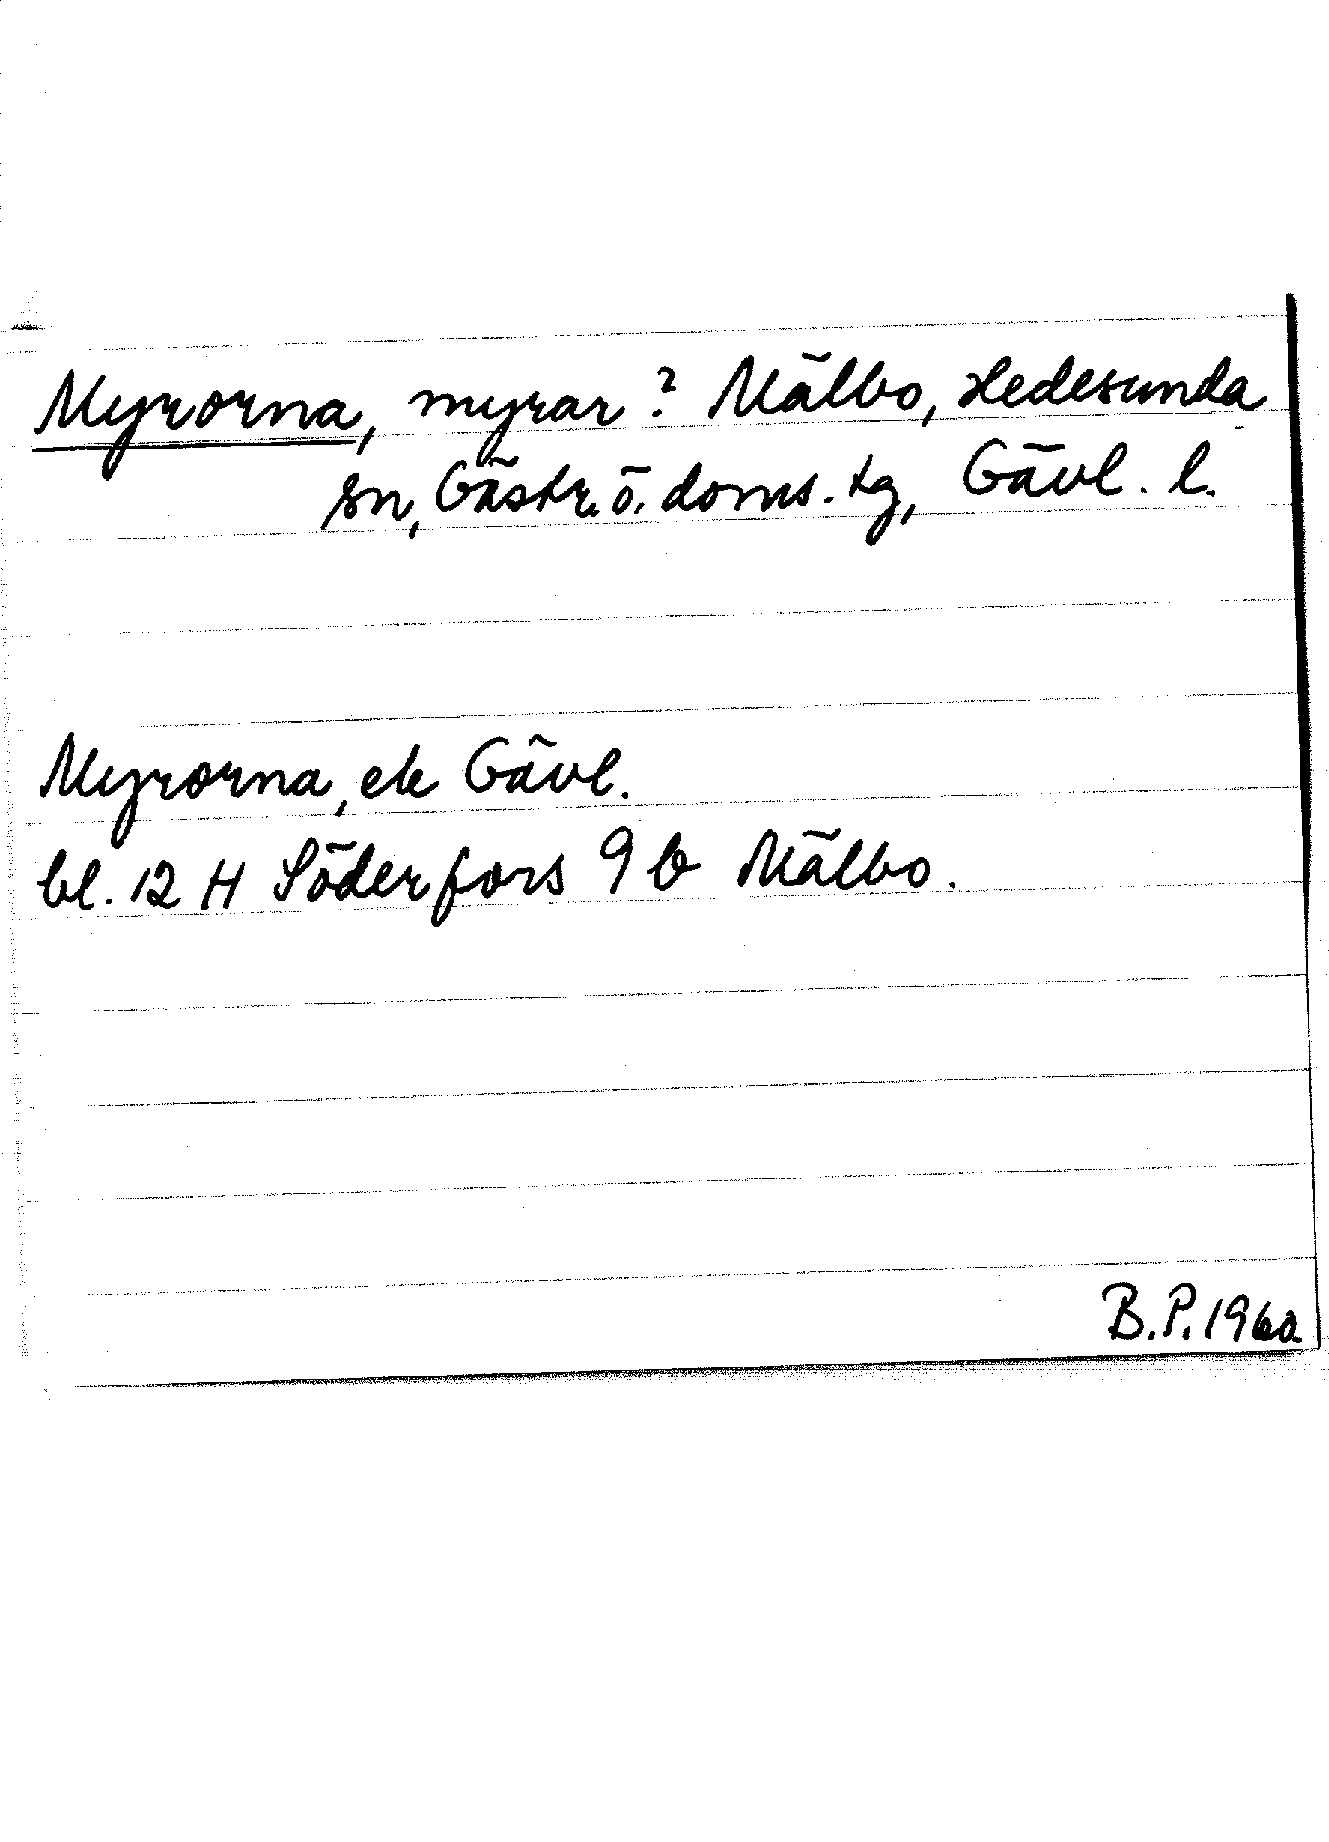 Myrorna, myrar? Mälbo, Hedesunda
sn, Gästr. ö. doms. tg, Gävl. l.
Myrorna, ek Gävl.
bl. 12 H Söderfors 9 b Mälbo.
B.P. 1960